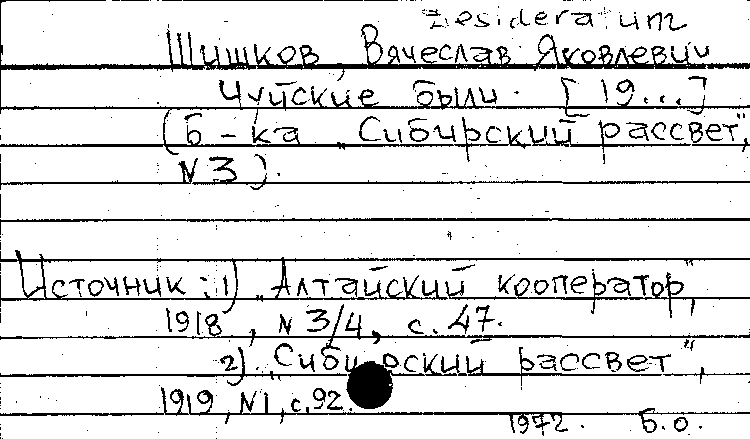 Desideratum
Шишков, Вячеслав Яковлевич
Чуйские были. [19...]
(Б-ка „Сибирский рассвет",
N3).
Источник: 1) „Алтайский кооператор",
1918, N 3/4, с. 47.
2) „Сибирский рассвет",
1919, N1, с. 92.
1972. Б.о.